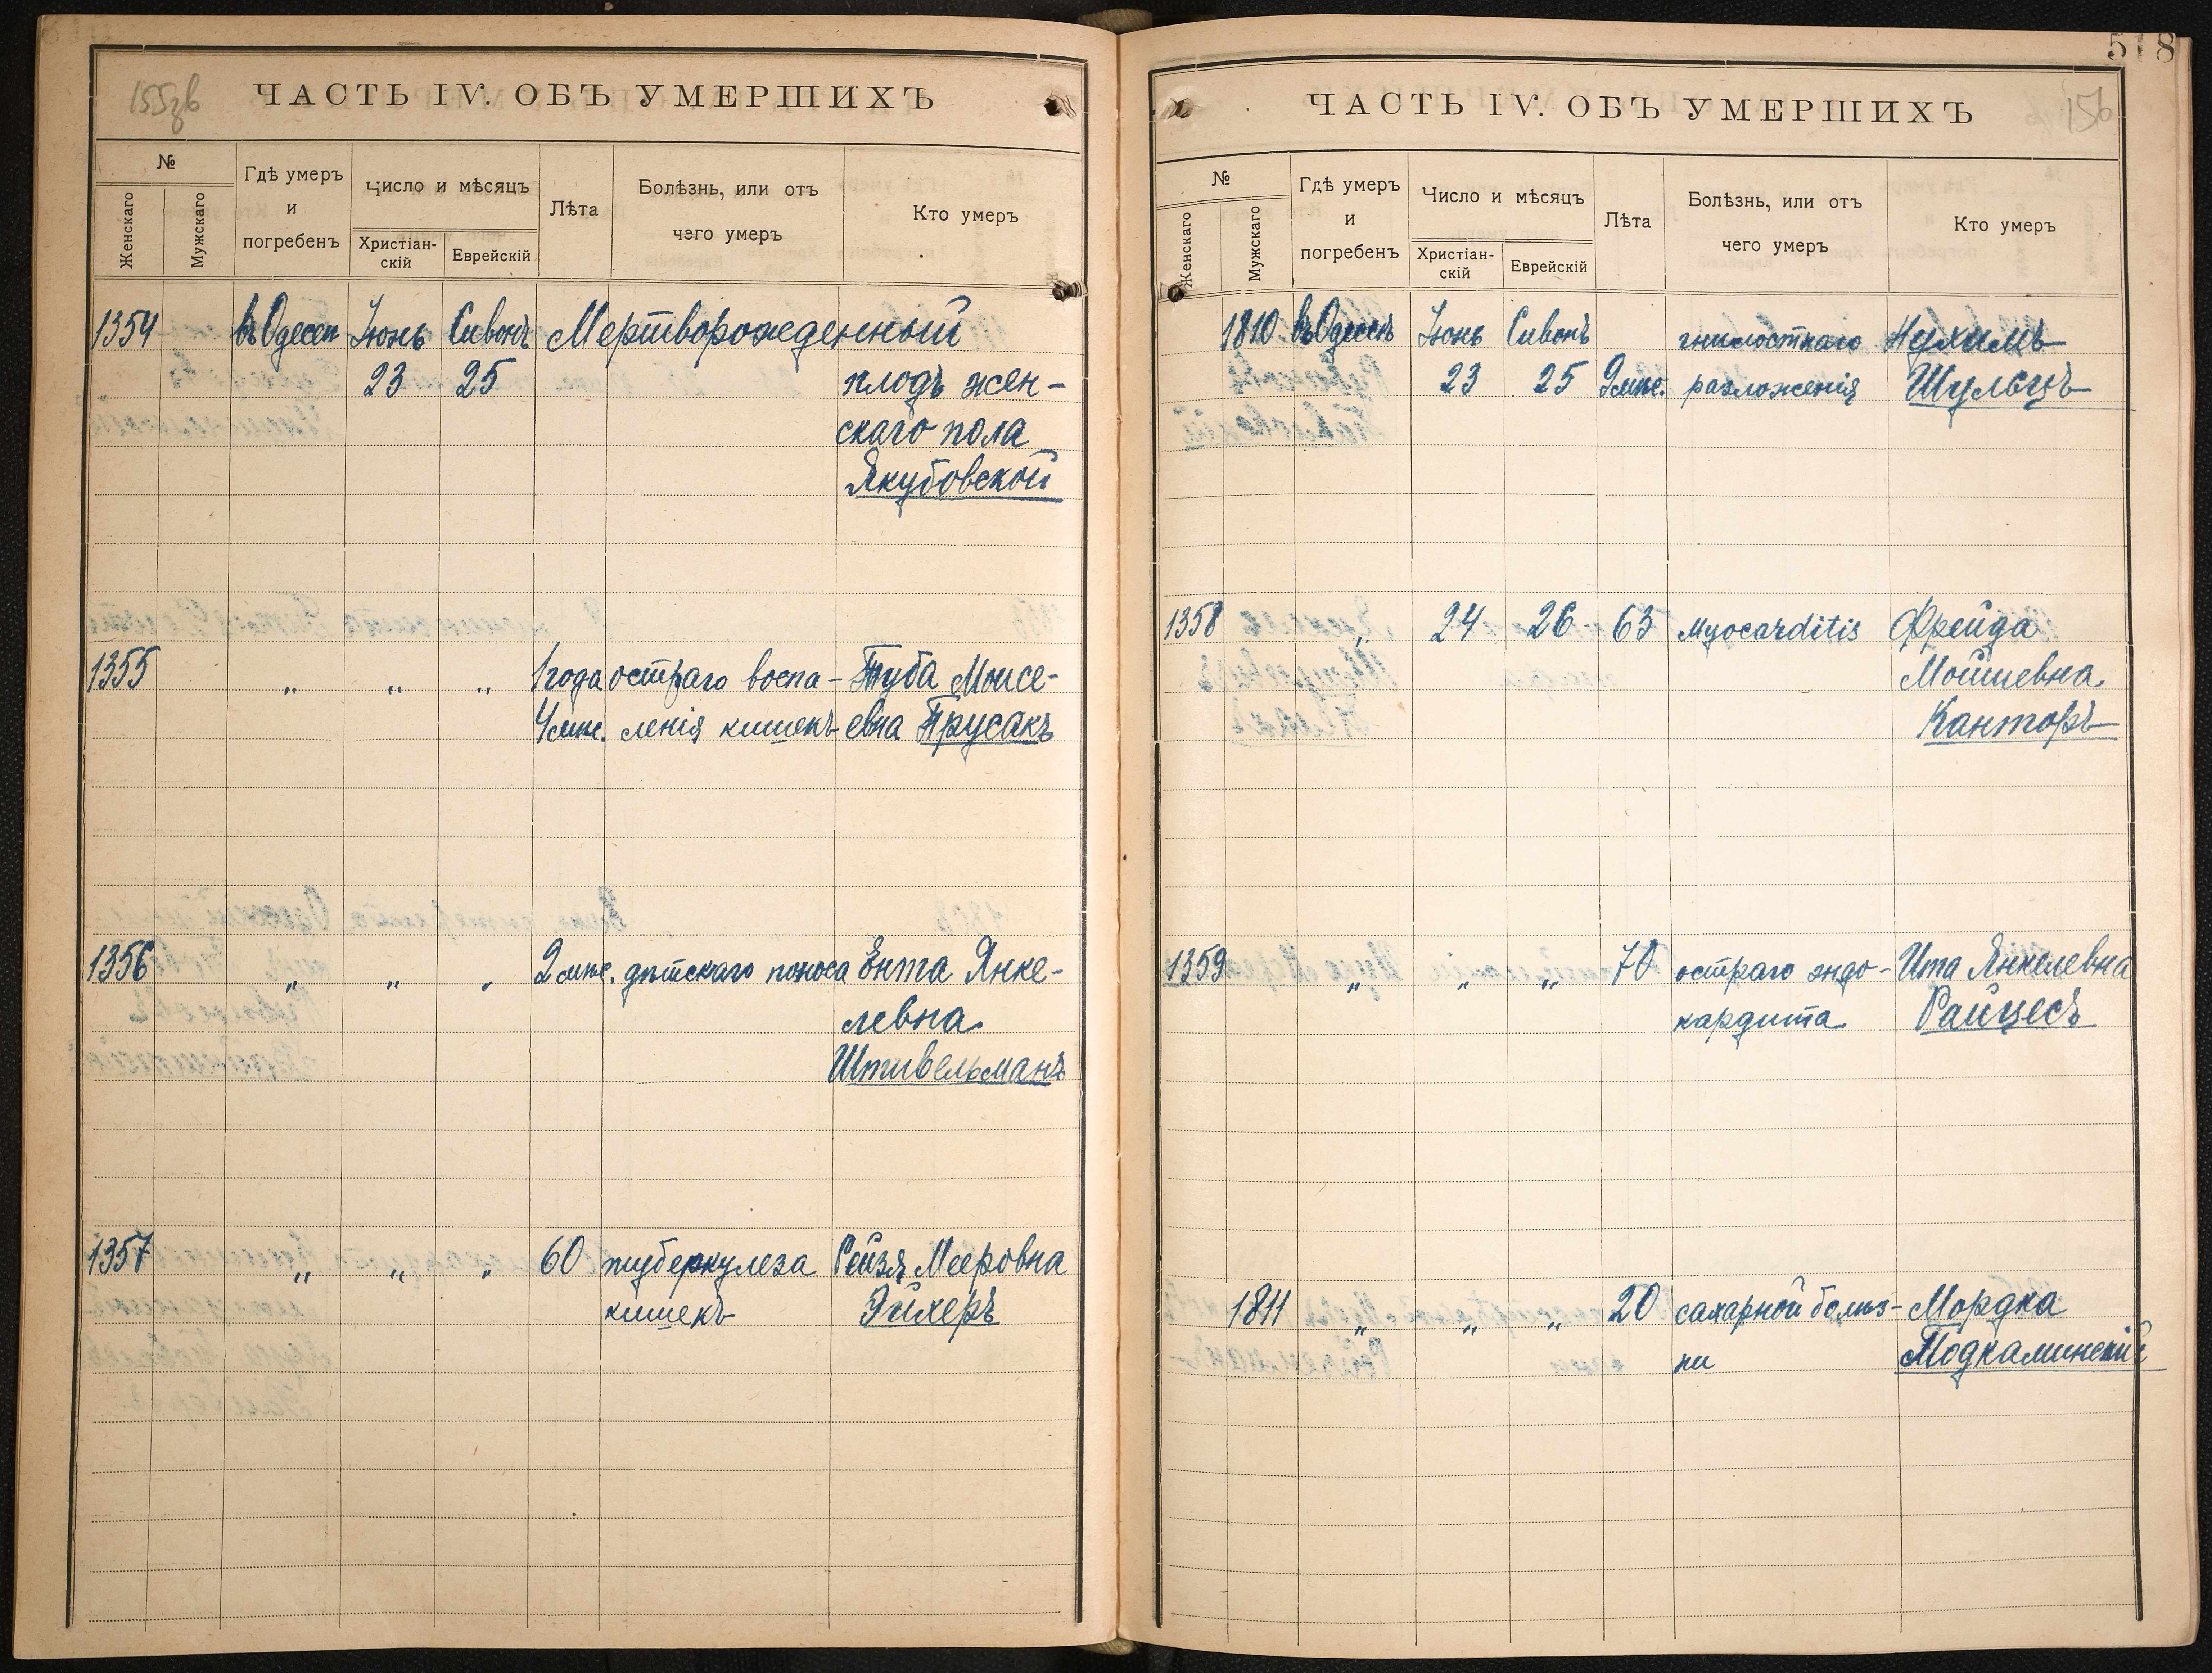 155 об
ЧАСТЬ IV. ОБЪ УМЕРШИХЪ
№
Женскаго
Мужскаго
Гдѣ умеръ и погребенъ
Число и мѣсяцъ
Христіан-скій
Еврейскій
Лѣта
Болѣзнь, или отъ чего умеръ
Кто умеръ
1354 въ Одессѣ Іюнь Сивонъ Мертворожденный
23 25 плодъ жен-
скаго пола
Якубовской
1355 " " " 1 года остраго воспа- Туба Моисе-
4 мѣс. ленія кишекъ евна Прусакъ
1356 " " " 2 мѣс. дѣтскаго поноса Ента Янке-
левна
Штивельманъ
1357 " " " 60 туберкулеза Рейзя Мееровна
кишекъ Эйхеръ
518
ЧАСТЬ IV. ОБЪ УМЕРШИХЪ
156
№
Женскаго
Мужскаго
Гдѣ умеръ и погребенъ
Число и мѣсяцъ
Христіан-скій
Еврейскій
Лѣта
Болѣзнь, или отъ чего умеръ
Кто умеръ
1810 въ Одессѣ Іюнь Сивонъ гнилостнаго Нухимъ
23 25 9 мѣс. разложенія Шульцъ
1358 " 24 26 63 Myocarditis Фрейда
Мойшевна
Канторъ
1359 " " " 70 остраго эндо- Ита Янкелевна
кардита Райцесъ
1811 " " " 20 сахарной болѣз- Мордка
ни Подкаминскій